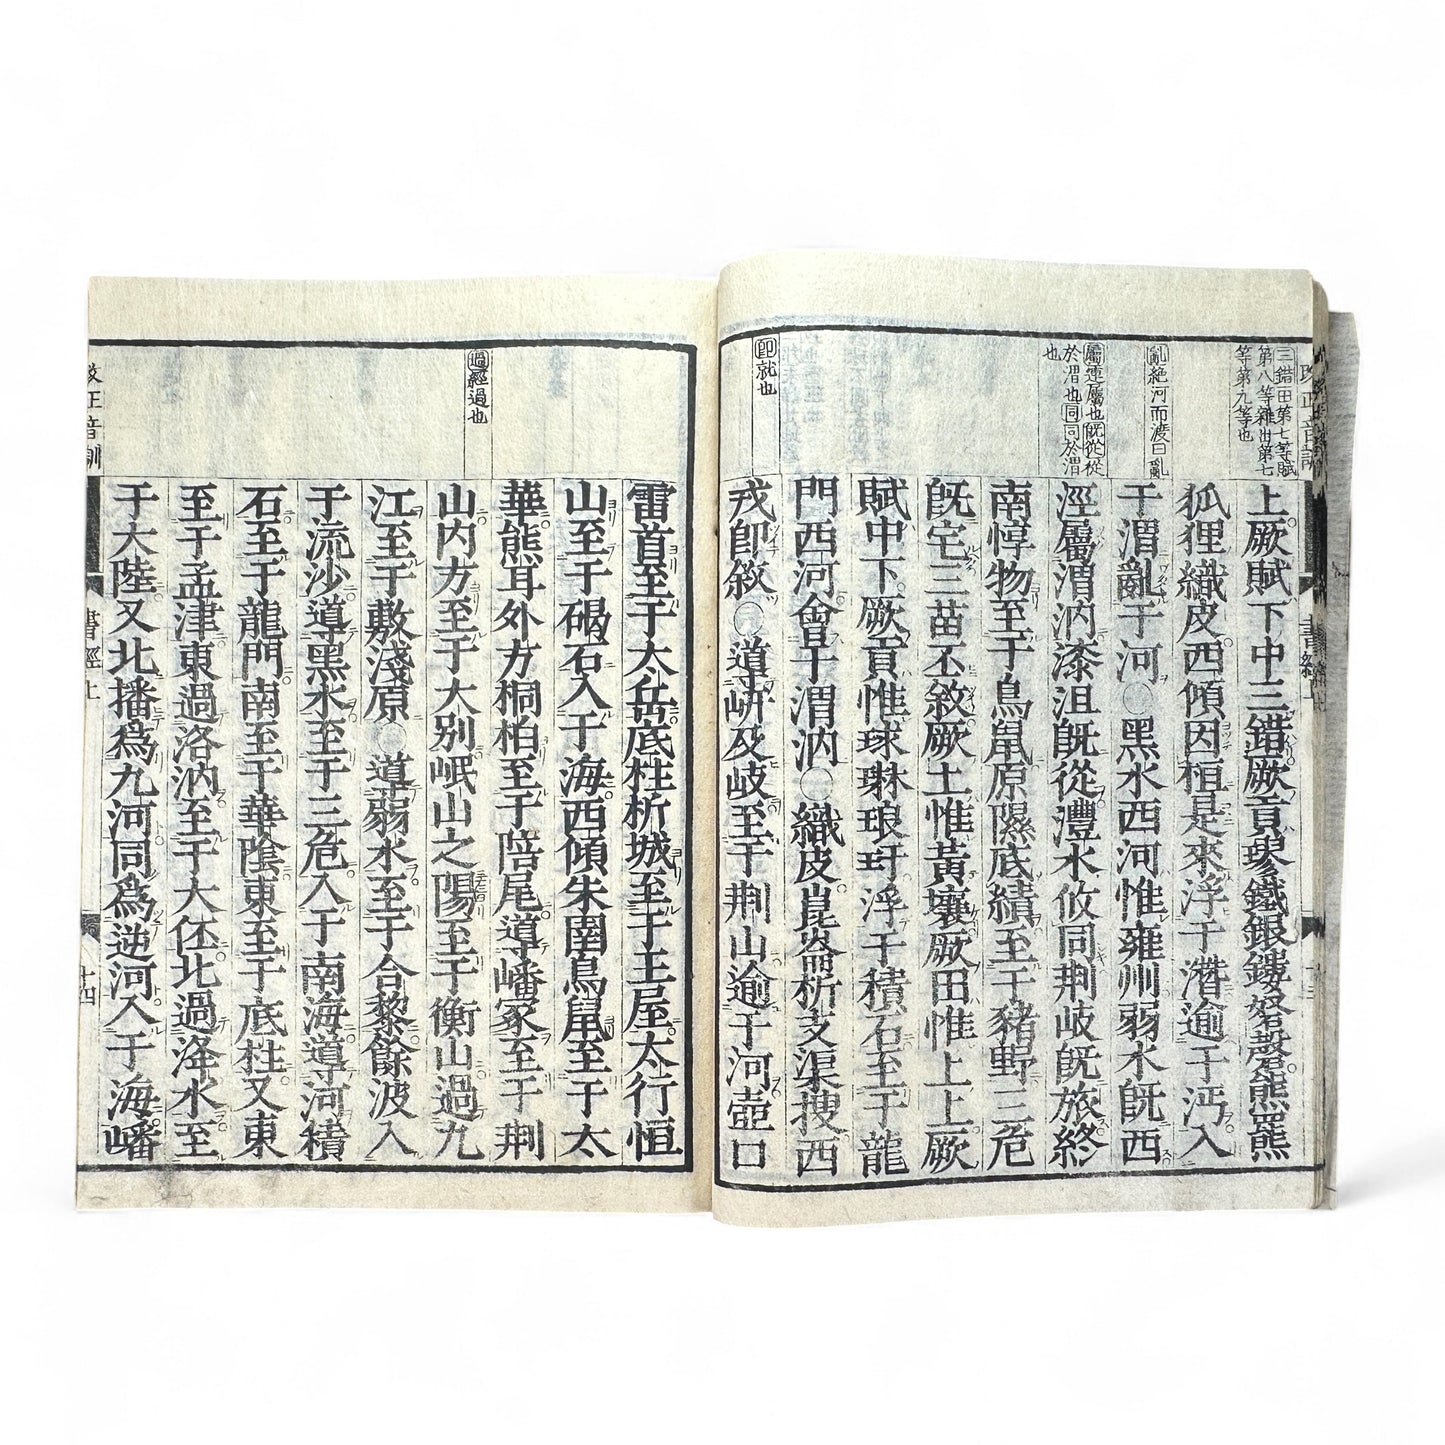 三錯田第七等賦
第八等雜出第七
等第九等也
亂絶河而渡曰亂
屬連屬也既從從
於渭也同同於渭
也
即就也
上厥賦下中三錯厥貢璆鐵銀鏤砮磬熊羆
狐狸織皮西傾因桓是來浮于潛逾于沔入
于渭亂于河○黑水西河惟雍州弱水既西
涇屬渭汭漆沮既從灃水攸同荆岐既旅終
南惇物至于鳥鼠原隰底績至于豬野三危
既宅三苗丕敘厥土惟黃壤厥田惟上上厥
賦中下厥貢惟球琳琅玕浮于積石至于龍
門西河會于渭汭○織皮崑崙析支渠搜西
戎卽敘○導岍及岐至于荆山逾于河壺口
過經過也
雷首至于太岳底柱析城至于王屋太行恒
山至于碣石入于海西傾朱圉鳥鼠至于太
華熊耳外方桐柏至于陪尾導嶓冢至于荆
山內方至于大別岷山之陽至于衡山過九
江至于敷淺原○導弱水至于合黎餘波入
于流沙導黑水至于三危入于南海導河積
石至于龍門南至于華陰東至于底柱又東
至于孟津東過洛汭至于大伾北過洚水至
于大陸又北播爲九河同爲逆河入于海嶓
改正音訓
書經上
十四